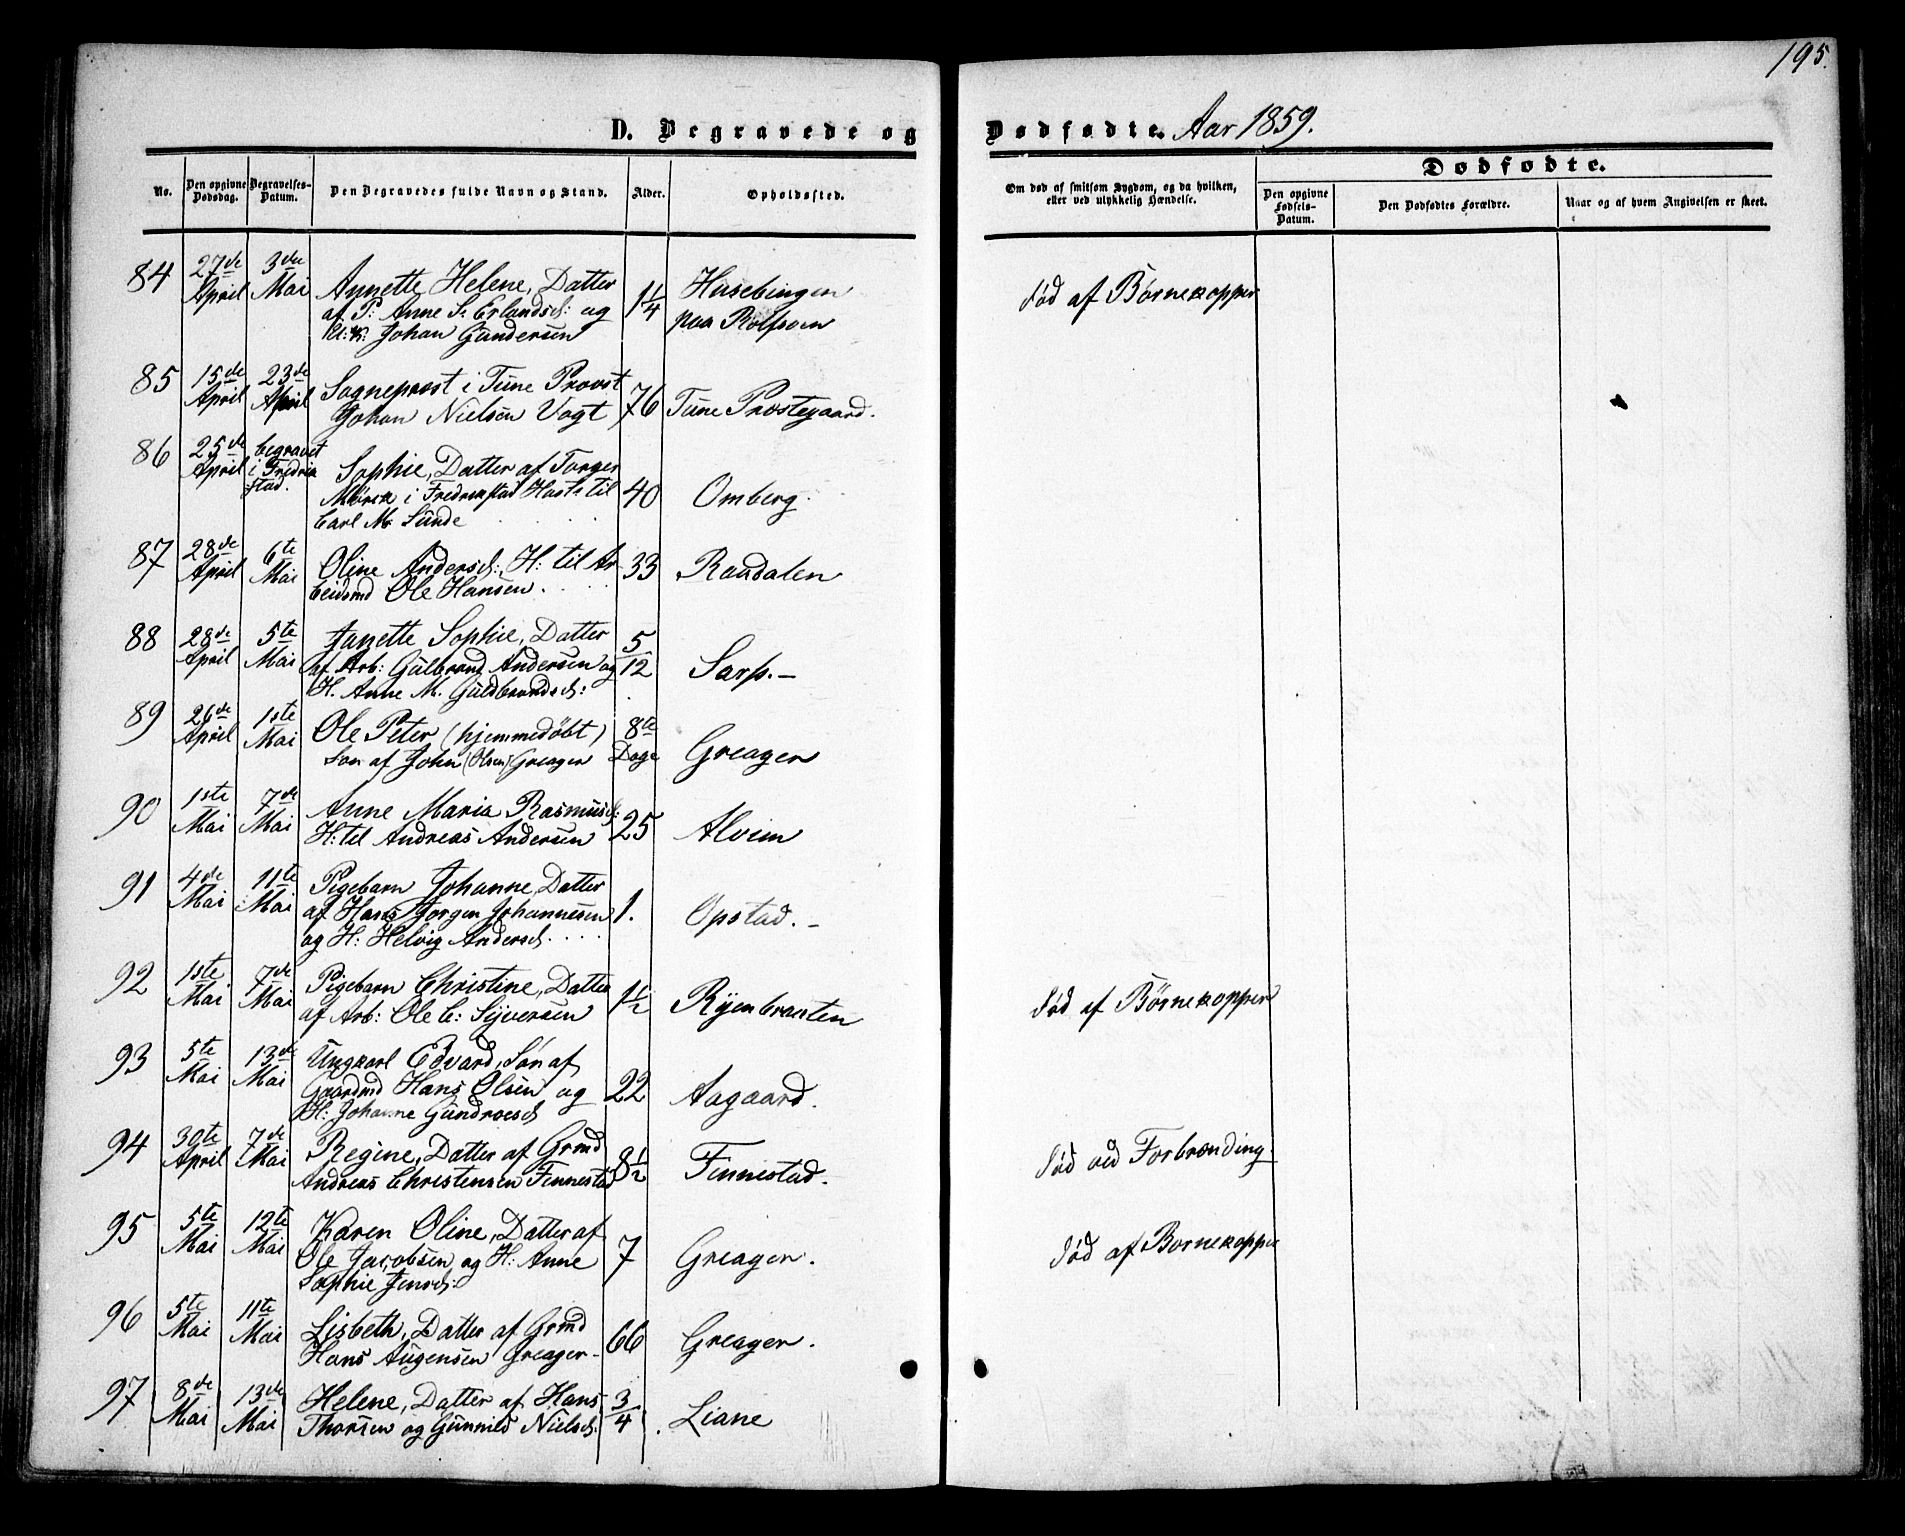 195.
D. Begravede og Dødfødte. Aar 1859.
No.
Den opgivne Dødsdag.
Begravelses-Datum.
Den Begravedes fulde Navn og Stand.
Alder.
Opholdssted.
Om død af smitsom Sygdom, og da hvilken,
eller ved ulykkelig Hændelse.
Dødfødte.
Den opgivne Fødsels-Datum.
Den Dødfødtes Forældre.
Naar og af hvem Angivelsen er skeet.
84 27de April 3die Mai Annette Helene, Datter
af P: Anne S. Erlandsd: og
Johan Gundersen
1 1/4
Husebingen
paa Rolfsøen
død af Børnekopper
85 15de April 23de April Sognepræst i Tune Provst
Johan Nielsen Vogt
76 Tune Præstegaard.
86 25de April begravet i Fredrikstad. Sophie, Datter af Torger
Mørck i Fredrikstad Hustr til
Carl M. Sunde
40 Omberg.
87 28de April 6te Mai Oline Andersd: H: til Ar
beidsmd Ole Hansen.
33 Raudalen
88 28de April 5te Mai Janette Sophie, Datter
af Arb: Gulbrand Andersen og
H. Anne M. Guldbrandsd:
5/12 Sarp.–
89 26de April 1ste Mai Ole Peter (hjemmedøbt)
Søn af John (Olsen) Greager
8te Dage Greager
90 1ste Mai 7de Mai Anne Maria Rasmusd:
H: til Andreas Andersen
25 Alvim
91 4de Mai 11te Mai Pigebarn Johanne, Datter
af Hans Jørgen Johannesen
og H: Helvig Andersd.
1. Opstad.–
92 1ste Mai 7de Mai Pigebarn Christine, Datter
af Arb: Ole C: Syversen
1 1/2 Ryenbraaten
død af Børnekopper
93 5te Mai 13de Mai Ungkarl Edvard, Søn af
Gaardmd Hans Olsen og
H: Johanne Gundroesd
22 Aagaard.
94 30te April 7de Mai Regine, Datter af Grmd
Andreas Christensen Finnestad
8 1/2 Finnestad.
død ved Forbrænding.
95 5te Mai 12te Mai Karen Oline, Datter af
Ole Jacobsen og H: Anne
Sophie Jensd:
7 Greager.
død af Børnekopper
96 5te Mai 11te Mai Lisbeth, Datter af Grmd
Hans Augensen Greager–
66 Greager.
97 8de Mai 13de Mai Helene, Datter af Hans
Thorsen og Gunnild Nielsd:
3/4 Liane